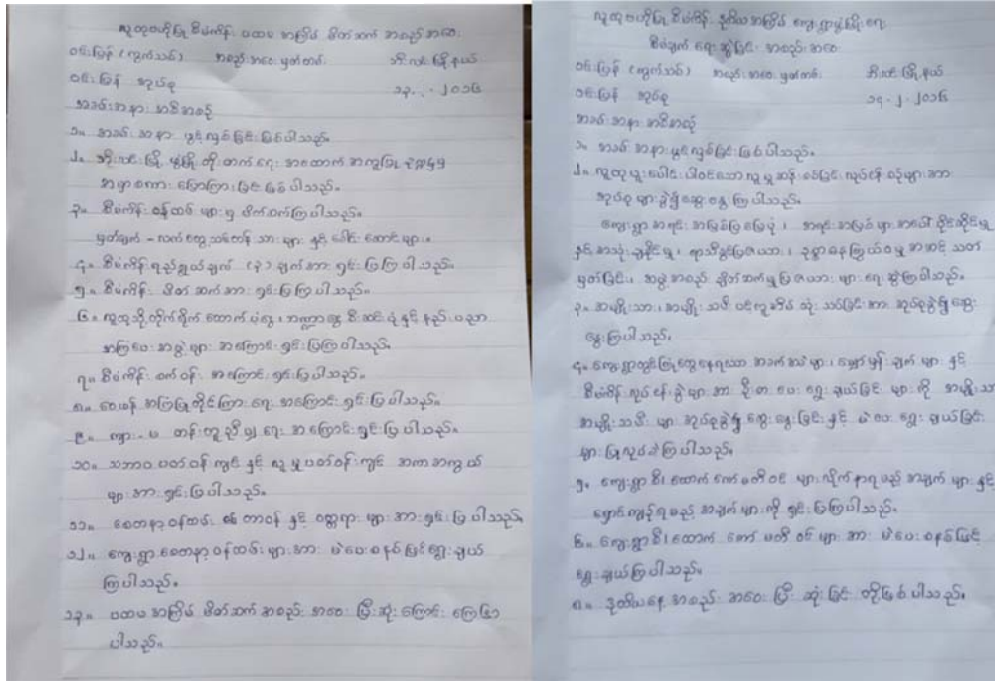 လူထုဗဟိုပြု စီမံကိန်း ပထမ အကြိမ် မိတ်ဆက် အစည်းအဝေး
ဝင်းမြန် (ကွက်သစ်) အစည်းအဝေး မှတ်တမ်း ဘီးလင်းမြို့နယ်
ဝင်းမြန် အုပ်စု
အခမ်းအနား အစီအစဉ်
၁။ အခမ်းအနား ဖွင့်လှစ်ခြင်း ဖြစ်ပါသည်။
၂။ ဘီးလင်းမြို့ ဖွံ့ဖြိုးတိုးတက်ရေး အထောက်အကူပြု ဥက္ကဌမှ
အမှာစကား ပြောကြားခြင်း ဖြစ်ပါသည်။
၃။ စီမံကိန်း ဝန်ထမ်းများမှ မိတ်ဆက်ကြပါသည်။
၄။ စီမံကိန်းရည်ရွယ်ချက် (၃) ချက်အား ရှင်းပြကြပါသည်။
၅။ စီမံကိန်း မိတ်ဆက်အား ရှင်းပြကြပါသည်။
၆။ လူထုသို့ တိုက်ရိုက် ထောက်ပံ့ငွေ၊ ဘဏ္ဍာငွေ စီးဆင်းပုံနှင့် နည်းပညာ
အကြံပေး အဖွဲ့များ အကြောင်း ရှင်းပြကြပါသည်။
၇။ စီမံကိန်း စက်ဝန်း အကြောင်း ရှင်းပြကြပါသည်။
၈။ ဝေဖန် အကြံပြုတိုင်ကြားရေး အကြောင်း ရှင်းပြကြပါသည်။
၉။ ကျား-မ တန်းတူညီမျှရေး အကြောင်း ရှင်းပြပါသည်။
၁၀။ သဘာဝ ပတ်ဝန်းကျင်နှင့် လူမှုပတ်ဝန်းကျင် အကာအကွယ်
များအား ရှင်းပြပါသည်။
၁၁။ စေတနာ့ဝန်ထမ်း တာဝန်နှင့် ဝတ္တရားများအား ရှင်းပြပါသည်။
၁၂။ ကျေးရွာ စေတနာ့ဝန်ထမ်းများအား မဲပေးစနစ်ဖြင့်ရွေးချယ်
ကြပါသည်။
၁၃။ ပထမအကြိမ် မိတ်ဆက် အစည်းအဝေး ပြီးဆုံးကြောင်း ကြေငြာ
ပါသည်။
လူထုဗဟိုပြု စီမံကိန်း ဒုတိယအကြိမ် ကျေးရွာဖွံ့ဖြိုးရေး
စီမံချက် ရေးဆွဲခြင်း အစည်းအဝေး
ဝင်းမြန် (ကွက်သစ်) အစည်းအဝေး မှတ်တမ်း ဘီးလင်းမြို့နယ်
ဝင်းမြန် အုပ်စု
အခမ်းအနား အစီအစဉ်
၁။ အခမ်းအနား ဖွင့်လှစ်ခြင်း ဖြစ်ပါသည်။
၂။ လူထုပူးပေါင်းပါဝင်သော လူမှုဆန်းစစ်ခြင်း လုပ်ငန်းစဉ်များအား
အုပ်စုများခွဲ၍ ဆွေးနွေးကြပါသည်။
ကျေးရွာအရင်းအမြစ်ပြမြေပုံ၊ အရင်းအမြစ်များအပေါ် ပိုင်ဆိုင်မှု
နှင့် အသုံးချနိုင်မှု၊ ရာသီခွင်ပြဇယား၊ ဥစ္စာဓနကြွယ်ဝမှု အဆင့်သတ်
မှတ်ခြင်း၊ အဖွဲ့အစည်း ချိတ်ဆက်မှုပြဇယားများ ရေးဆွဲကြပါသည်။
၃။ အမျိုးသား၊ အမျိုးသမီး အုပ်စုခွဲ၍ ဆွေး
နွေးကြပါသည်။
၄။ ကျေးရွာတွင်ကြုံတွေ့နေရသော အခက်အခဲများ၊ မျှော်မှန်းချက်များ နှင့်
စီမံကိန်းလုပ်ငန်းခွဲများအား ဦးစားပေး ရွေးချယ်ခြင်းများကို အမျိုးသား
အမျိုးသမီး အုပ်စုခွဲ၍ ဆွေးနွေးခြင်းနှင့် မဲပေးရွေးချယ်ခြင်း
များ ပြုလုပ်ခဲ့ကြပါသည်။
၅။ ကျေးရွာစီ/ထောက် ကော်မတီဝင်များ လိုက်နာရမည့် အချက်များ နှင့်
ရှောင်ကျဉ်ရမည့် အချက်များကို ရှင်းပြကြပါသည်။
၆။ ကျေးရွာစီ/ထောက် ကော်မတီဝင်များအား မဲပေးစနစ်ဖြင့်
ရွေးချယ်ကြပါသည်။
၈။ ဒုတိယနေ့ အစည်းအဝေး ပြီးဆုံးခြင်း တို့ဖြစ်ပါသည်။